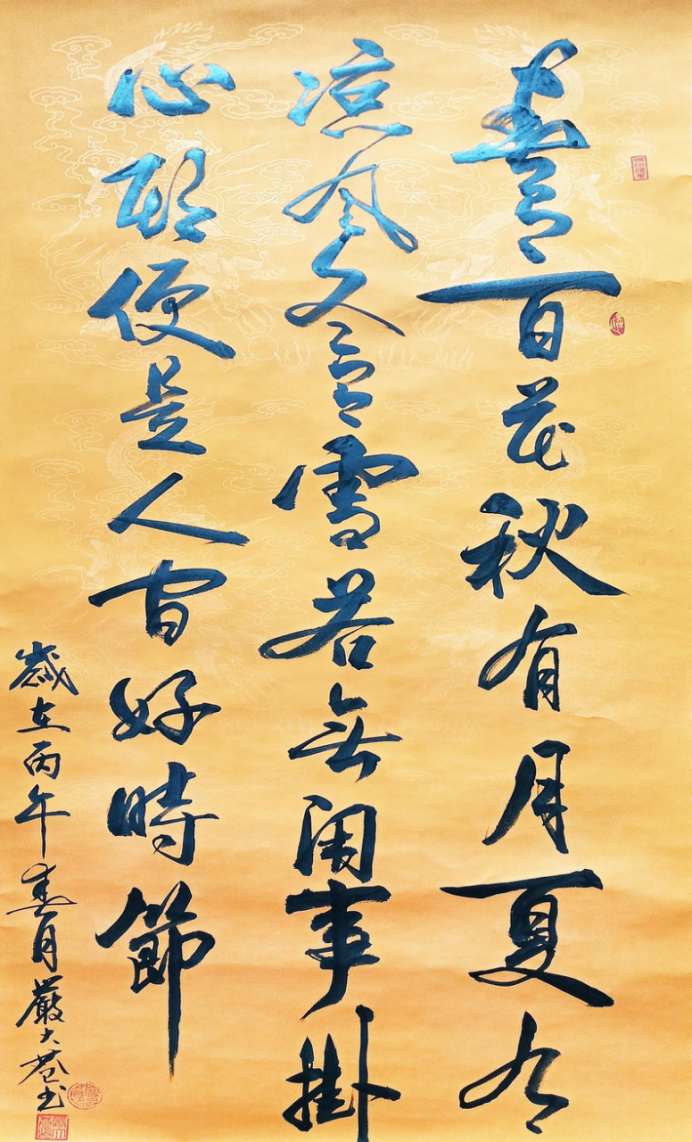 春有百花秋有月夏有
凉风冬有雪若無闲事掛
心頭便是人间好時節
歲在丙午春月嚴大书